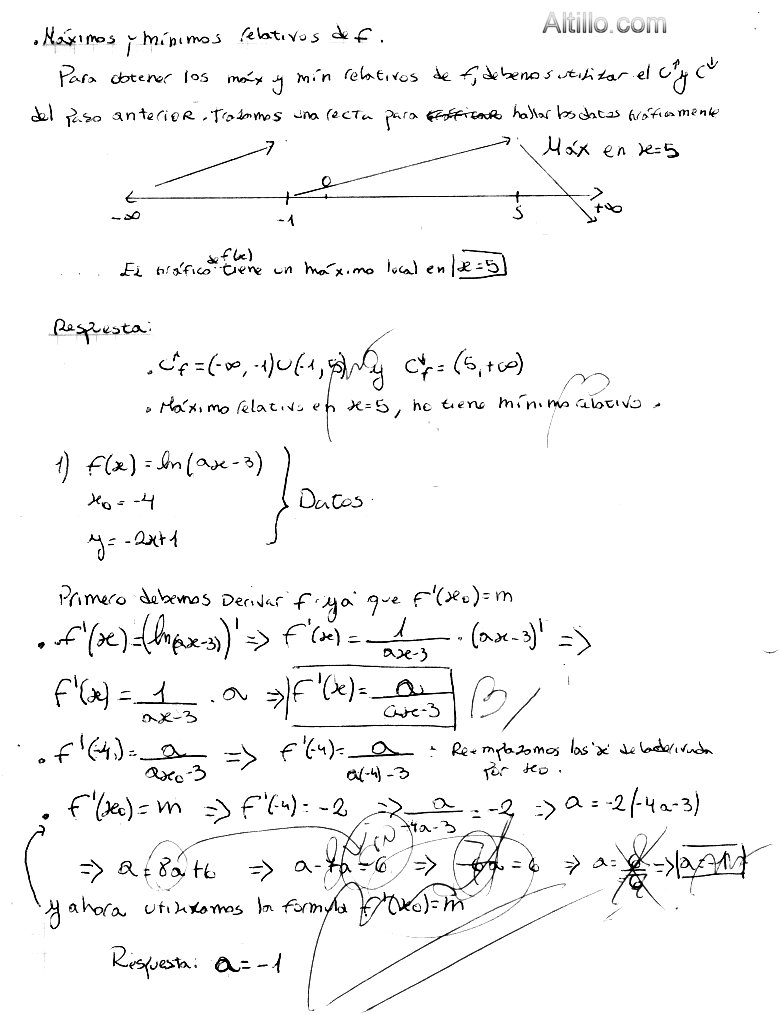 Altillo.com
. Máximos y mínimos relativos de f.
Para obtener los máx y mín relativos de f, debemos utilizar el C↑ y C↓
del paso anterior. Trazamos una recta para hallar los datos gráficamente
Máx en x=5
0
-∞ -1 5 +∞
El gráfico de f(x) tiene un máximo local en x=5
Respuesta:
. C↑f = (-∞, -1)∪(-1, 5) y C↓f = (5, +∞)
. Máximo relativo en x=5, no tiene mínimo relativo.
1) f(x) = ln(ax-3)
x0 = -4
y = -2x+1
} Datos.
Primero debemos Derivar f ya que f'(x0)=m
. f'(x) = (ln(ax-3))' => f'(x) = 1/(ax-3) . (ax-3)' =>
f'(x) = 1/(ax-3) . a => f'(x) = a/(ax-3) B
. f'(-4) = a/(ax0-3) => f'(-4) = a/(a(-4)-3) : Reemplazamos las "x" de la derivada
por x0.
. f'(x0) = m => f'(-4) = -2 => a/(-4a-3) = -2 => a = -2(-4a-3)
=> a = 8a+6 => a- a = 6 => a = 6 => a =
y ahora utilizamos la formula f'(x0)=m
Respuesta: a = -1